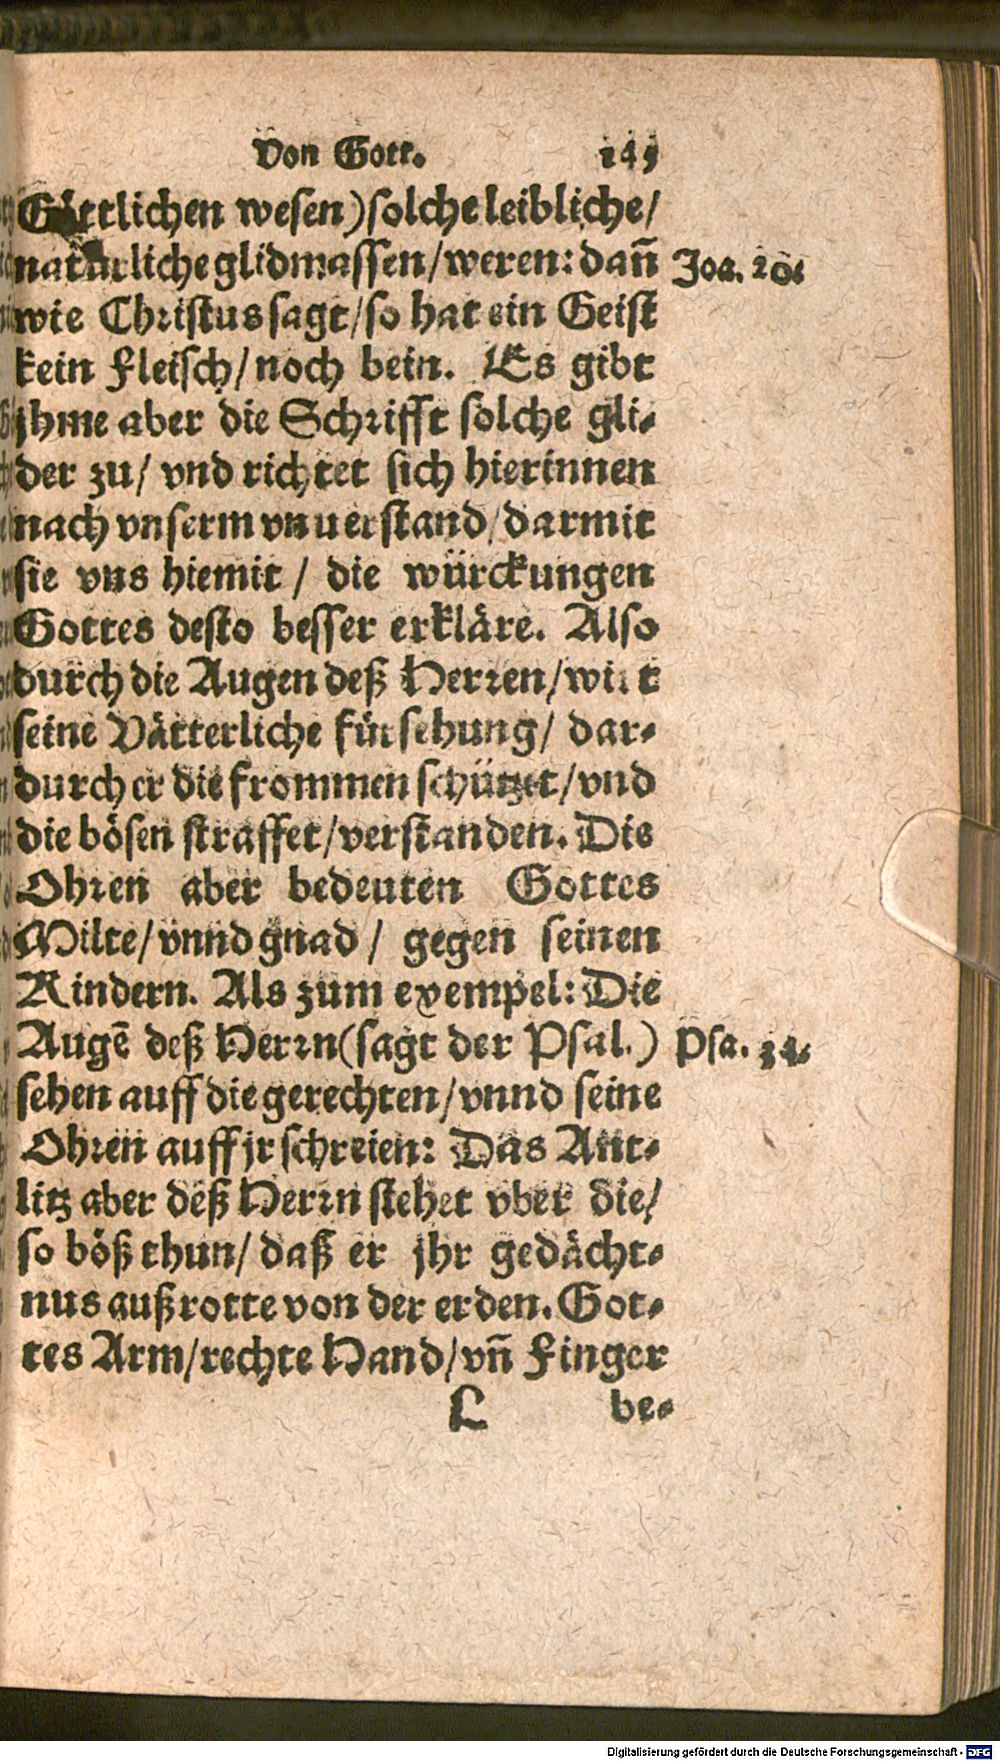 Von Gott. 145
Göttlichen wesen) solche leibliche/
natürliche glidmassen/weren: dañ Joa. 20.
wie Christus sagt/so hat ein Geist
kein fleisch/noch bein. Es gibt
jhme aber die Schrifft solche gli-
der zu/ vnd richtet sich hierinnen
nach vnserm vnuerstand/darmit
sie vns hiemit / die würckungen
Gottes desto besser erkläre. Also
durch die Augen deß Herren/wirt
seine Vätterliche fürsehung/ dar-
durch er die frommen schützet/vnd
die bösen straffet/verstanden. Die
Ohren aber bedeuten Gottes
Milte/vnnd gnad / gegen seinen
Kindern. Als zum exempel: Die
Augē deß Herrn(sagt der Psal.) Psa. 34.
sehen auff die gerechten/vnnd seine
Ohren auff jr schreien: Das Ant-
litz aber deß Herrn stehet vber die/
so böß thun/ daß er jhr gedächt-
nus außrotte von der erden. Got-
tes Arm/rechte Hand/vñ Finger
L be-
Digitalisierung gefördert durch die Deutsche Forschungsgemeinschaft - DFG